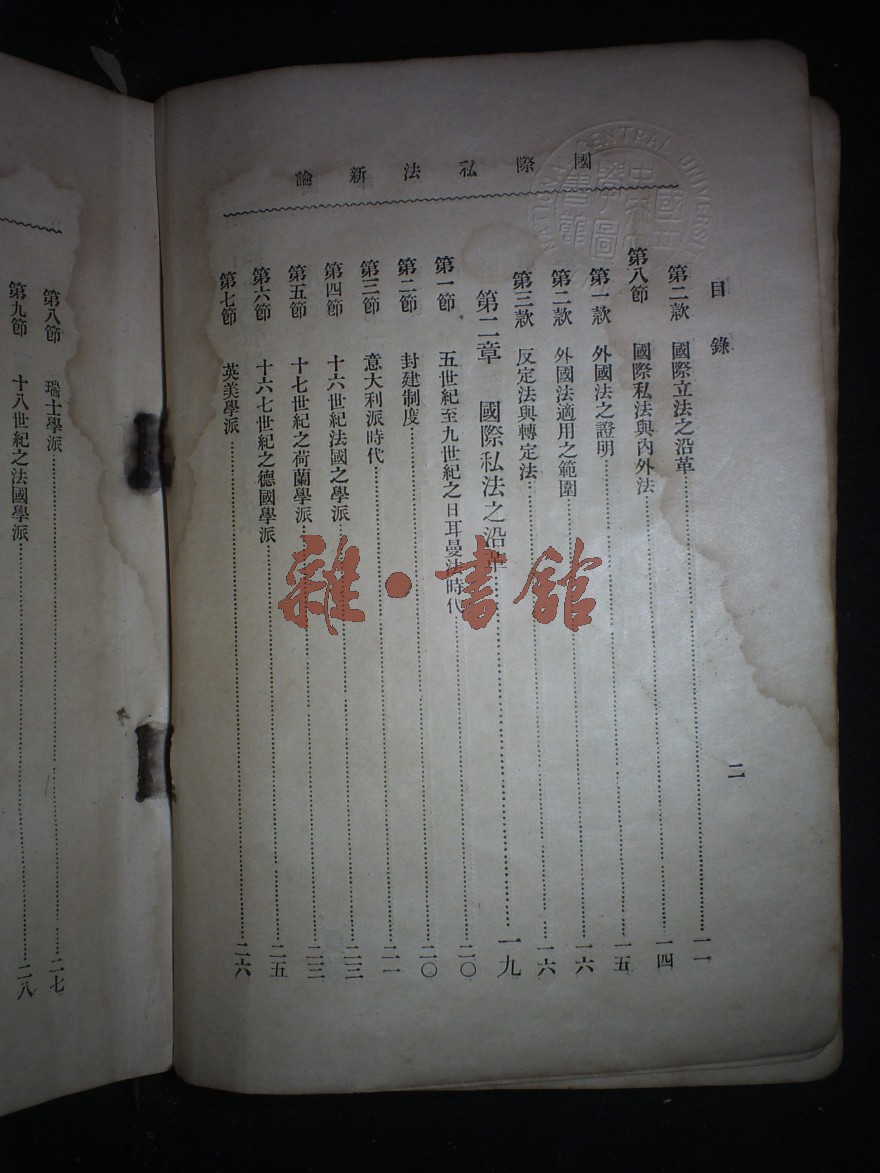 國際私法新論
NATIONAL CENTRAL UNIVERSITY
國立中央大學圖書館
目錄
二
第二款 國際立法之沿革 一一
第八節 國際私法與內外法 一四
第一款 外國法之證明 一五
第二款 外國法適用之範圍 一六
第三款 反定法與轉定法 一六
第二章 國際私法之沿革 一九
第一節 五世紀至九世紀之日耳曼法時代 二〇
第二節 封建制度 二〇
第三節 意大利派時代 二一
第四節 十六世紀法國之學派 二三
第五節 十七世紀之荷蘭學派 二三
第六節 十六七世紀之德國學派 二五
第七節 英美學派 二六
第八節 瑞士學派 二七
第九節 十八世紀之法國學派 二八
雜·書館